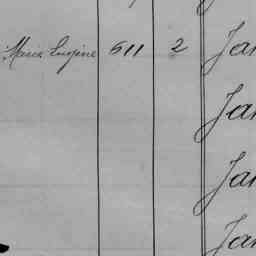 Marie Eugène 611 2 Jan
Jan
Jan
Jan